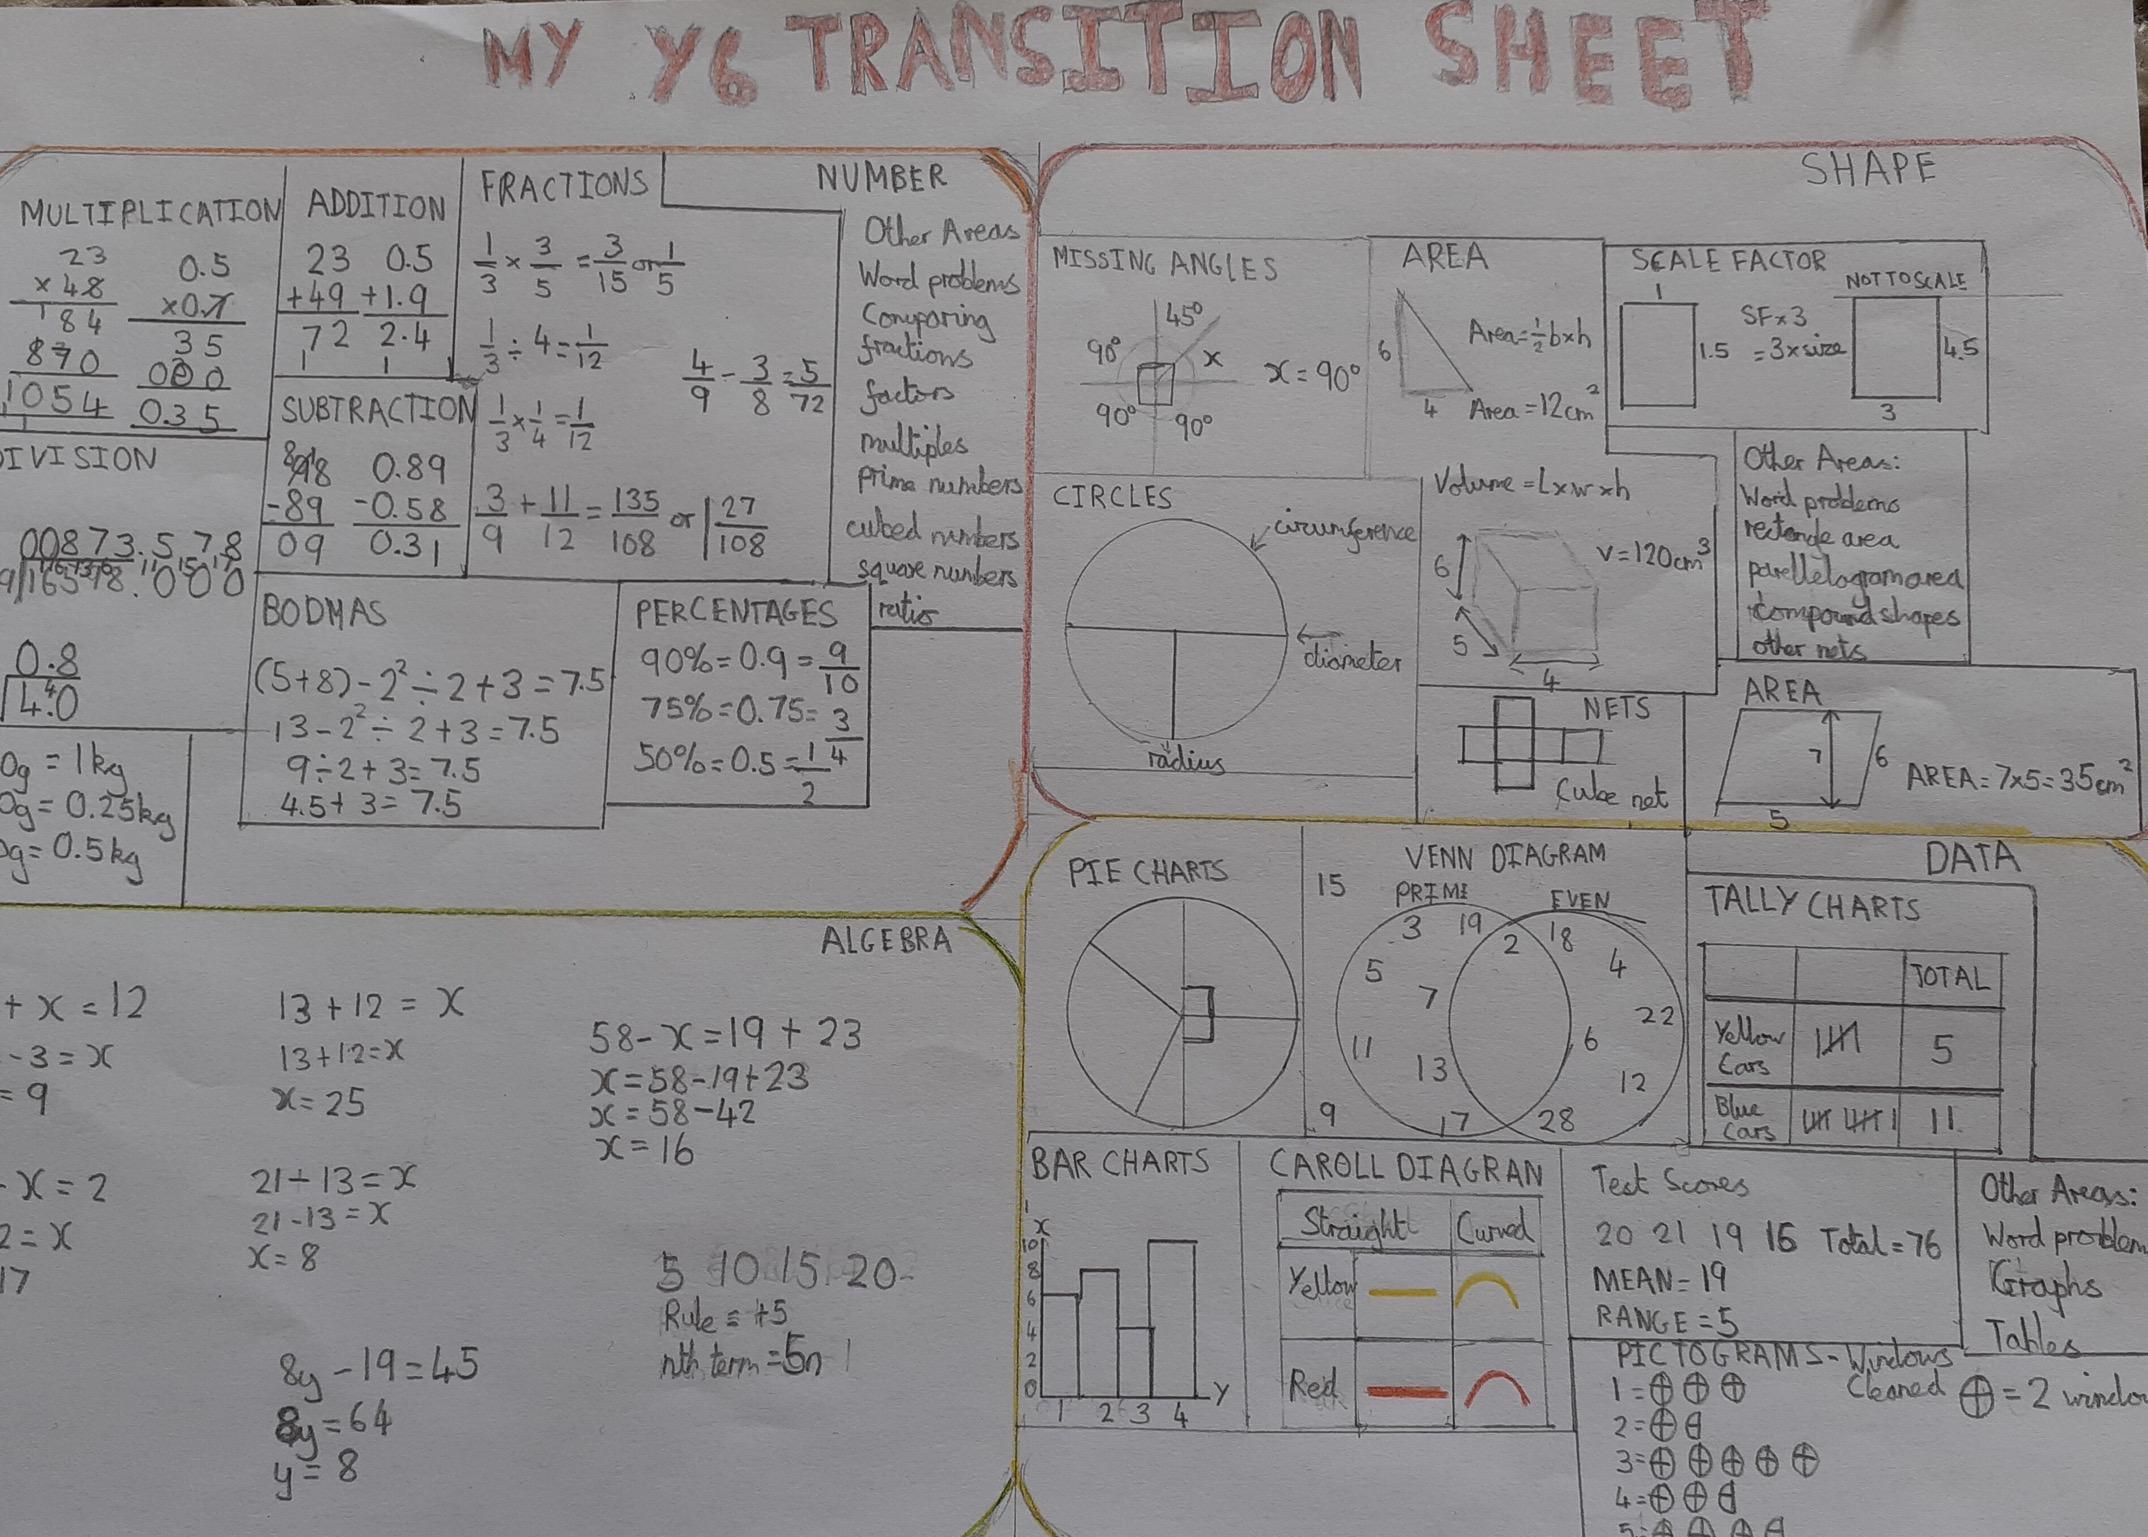 MY Y6 TRANSITION SHEET
NUMBER
MULTIPLICATION
23
×48
184
870
1054
1
0.5
×0.7
35
000
0.35
ADDITION
23
+49
72
1
0.5
+1.9
2.4
1
FRACTIONS
1/3 × 3/5 = 3/15 or 1/5
1/3 ÷ 4 = 1/12
1/3 × 1/4 = 1/12
4/9 - 3/8 = 5/72
3/9 + 11/12 = 135/108 or 1 27/108
Other Areas
Word problems
Comparing
fractions
factors
multiples
prime numbers
cubed numbers
square numbers
ratio
SUBTRACTION
-89
09
0.89
-0.58
0.31
IVISION
00873.578
0.8
4.0
BODMAS
(5+8)-2²÷2+3=7.5
13-2²÷2+3=7.5
9÷2+3=7.5
4.5+3=7.5
PERCENTAGES
90%=0.9=9/10
75%=0.75=3/4
50%=0.5=1/2
0g=1kg
0g=0.25kg
0g=0.5kg
SHAPE
MISSING ANGLES
45°
90°
x
x=90°
90°
90°
AREA
6
4
Area=½b×h
Area=12cm²
SCALE FACTOR
NOT TO SCALE
1
1.5
SF×3
=3×size
4.5
3
CIRCLES
circumference
diameter
radius
Volume=L×w×h
6
5
4
V=120cm³
Other Areas:
Word problems
rectangle area
parellelogram area
compound shapes
other nets
NETS
Cube net
AREA
7
6
5
AREA=7×5=35cm²
ALGEBRA
+x=12
-3=x
=9
13+12=x
13+12=x
x=25
58-x=19+23
x=58-19+23
x=58-42
x=16
-x=2
2=x
17
21-13=x
21-13=x
x=8
5 10 15 20
Rule=+5
nth term=5n
8y-19=45
8y=64
y=8
DATA
PIE CHARTS
VENN DIAGRAM
PRIME
EVEN
15
3 19 2 18
5 4
7 22
11 6
13 12
9 17 28
TALLY CHARTS
TOTAL
Yellow
Cars
5
Blue
Cars
11
BAR CHARTS
x
10
8
6
4
2
0
1 2 3 4 Y
CAROLL DIAGRAN
Straight Curved
Yellow
Red
Test Scores
20 21 19 16 Total=76
MEAN=19
RANGE=5
Other Areas:
Word problem
Graphs
Tables
PICTOGRAMS-Windows
Cleaned
=2 window
1=
2=
3=
4=
5=